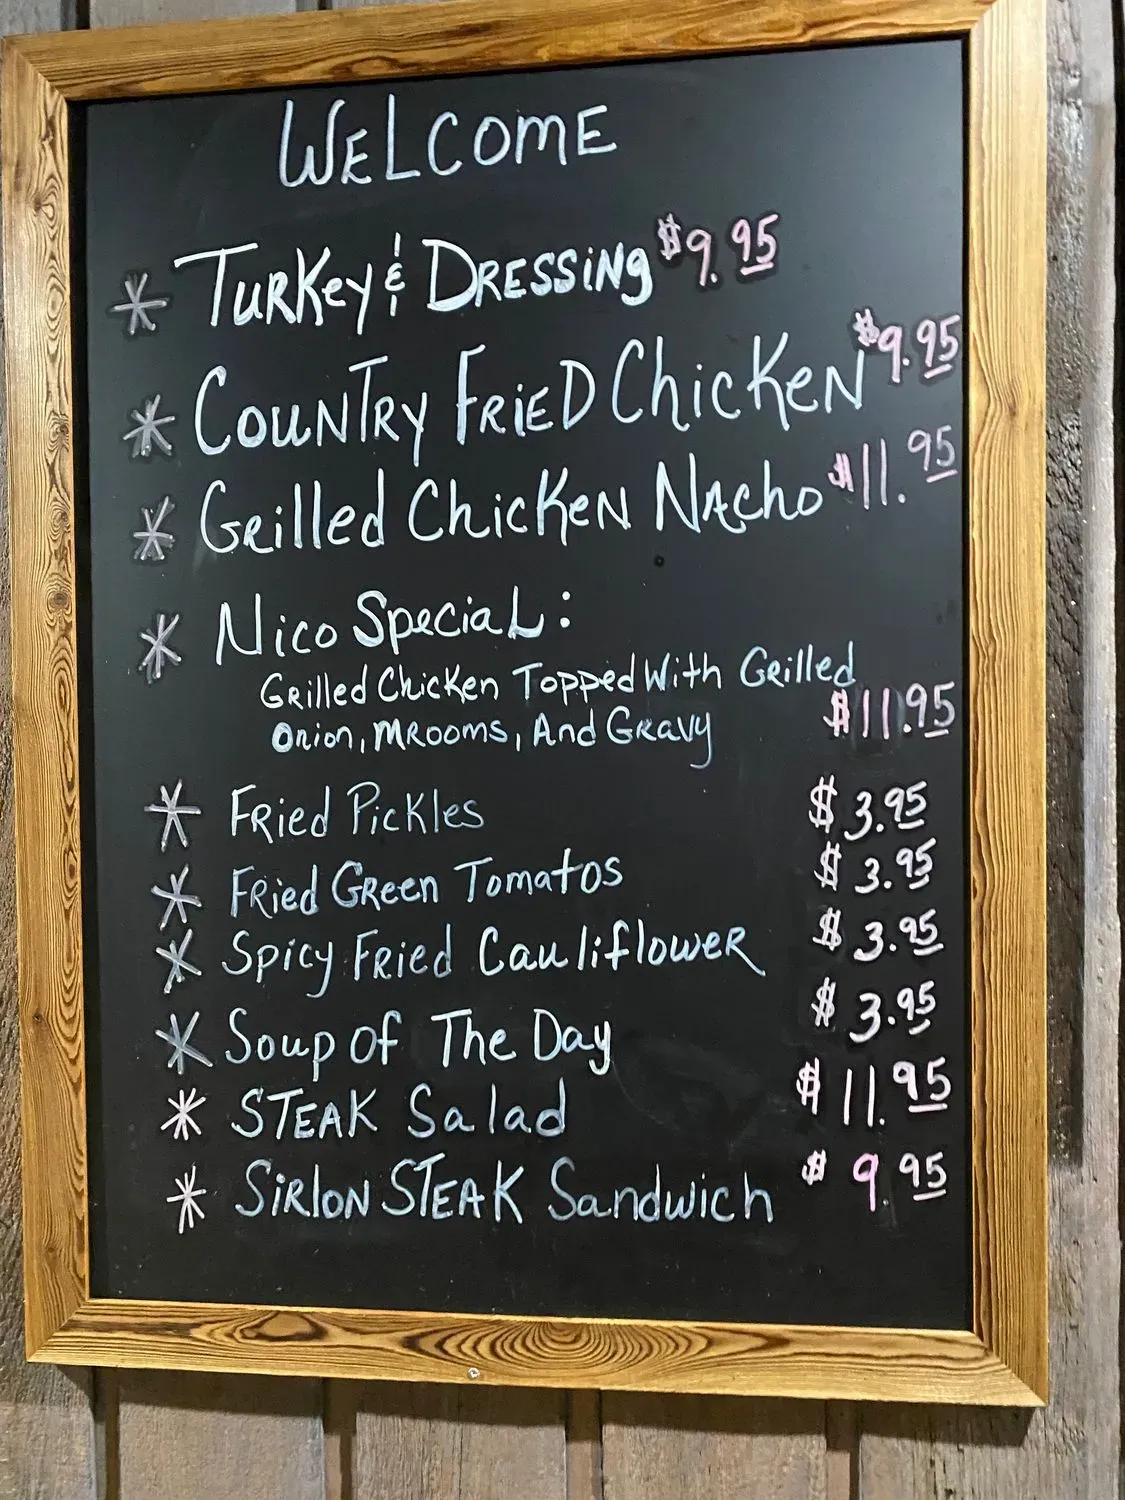 WELCOME
* Turkey & Dressing $9.95
* Country Fried Chicken $9.95
* Grilled Chicken Nacho $11.95
* Nico Special:
Grilled Chicken Topped With Grilled
Onion, Mrooms, And Gravy $11.95
* Fried Pickles $3.95
* Fried Green Tomatos $3.95
* Spicy Fried Cauliflower $3.95
* Soup Of The Day $3.95
* STEAK Salad $11.95
* SirloN STEAK Sandwich $9.95